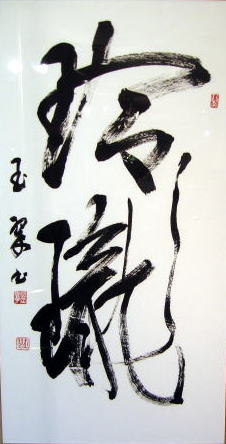 玲瓏
玉翠书